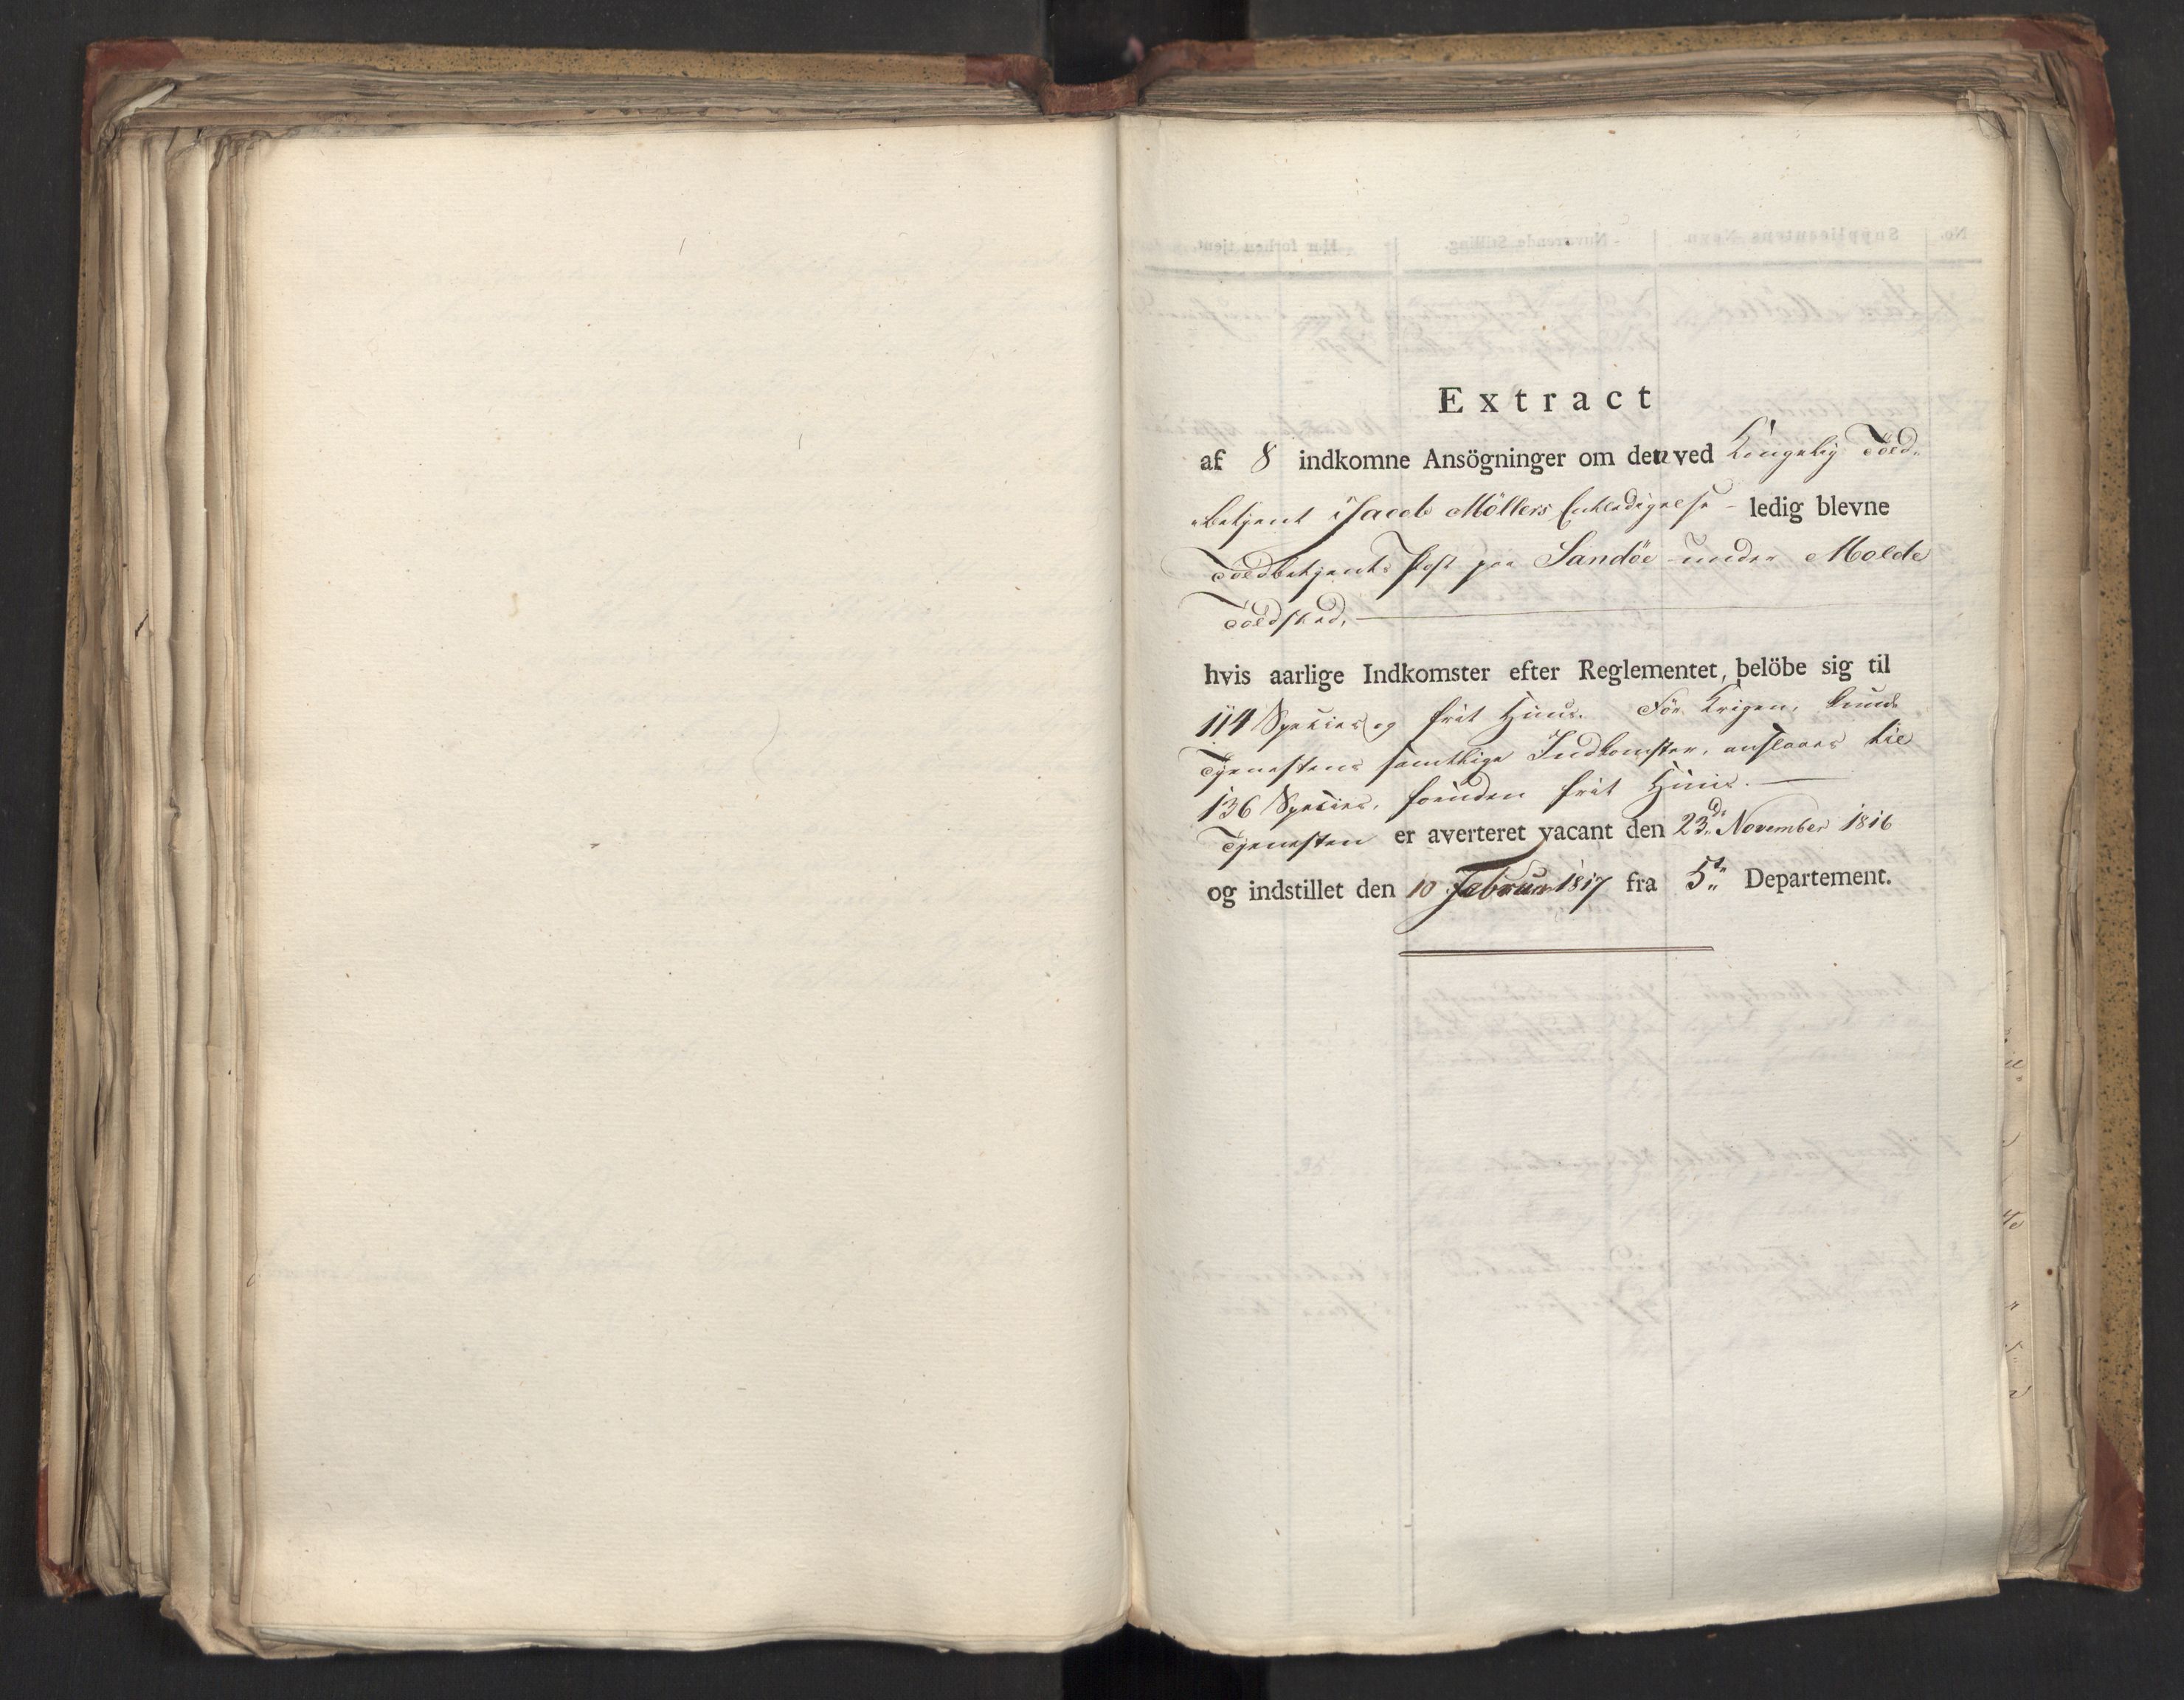 Extract
af 8 indkomne Ansögninger om den ved Kongelig Told-
betjent Jacob Möllers Entledigelse - ledig blevne
Toldbetjents Post paa Sandöe under Molde
Toldsted,
hvis aarlige Indkomster efter Reglementet, belöbe sig til
114 Species og frit Huus. För Krigen, kunde
Tjenestens samtlige Indkomster, anslaaes til
136 Species, foruden frit Huus.
Tjenesten er averteret vacant den 23de November 1816
og indstillet den 10 Februar 1817 fra 5te Departement.